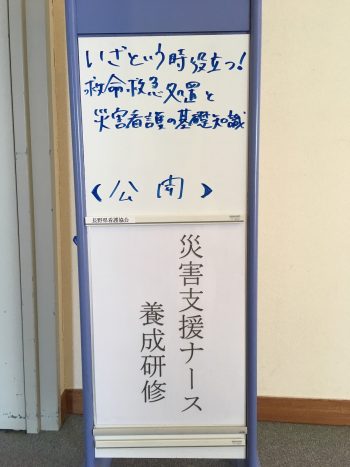 いざという時役立つ!
救命救急処置と
災害看護の基礎知識
〈公開〉
長野県看護協会
災害支援ナース
養成研修